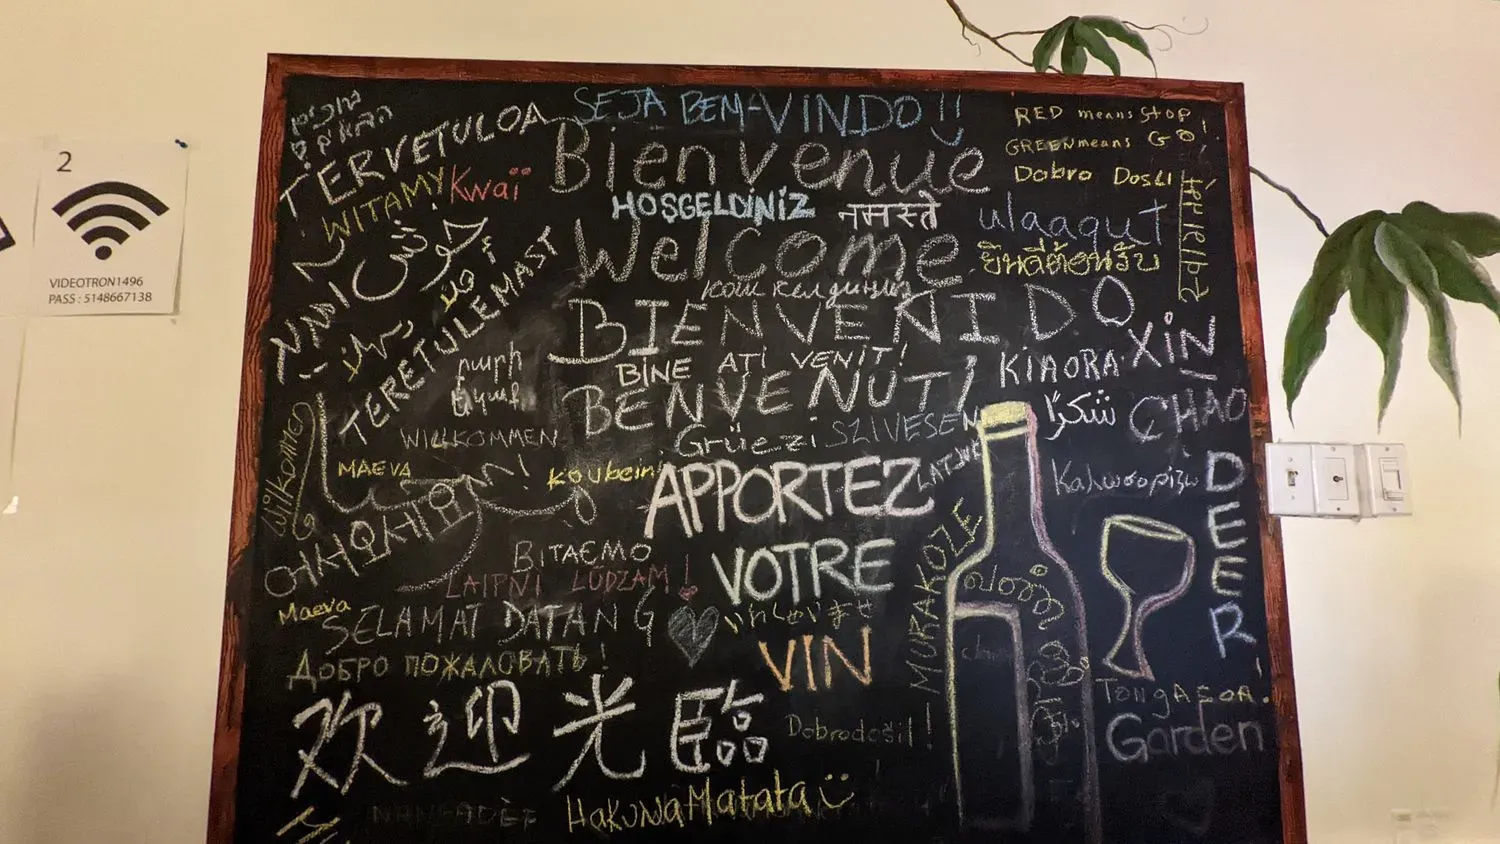 2
VIDEOTRON1496
PASS : 5148667138
SEJA BEM-VINDO !!
TERVETULOA
Bienvenue
RED means Stop
GREEN means GO !
Dobro Dosli
WITAMY
Kwaï
HOŞGELDİNİZ
नमस्ते
ulaaqut
Welcome
ยินดีต้อนรับ
خوش
TERETULEMAST
кош келдиниз
BIENVENIDO
XIN
CHAO
բարի
BINE ATI VENIT !
KIAORA
BENVENUTI
شكراً
WILLKOMMEN
Grüezi
SZIVESEN
LATJUK
Wilkomen
MAEVA
Koubein
APPORTEZ
VOTRE
VIN
Καλωσορίζω
DEER
Garden
ВІТАЄМО
LAIPNI LŪDZAM !
MURAKOZE
Maeva
SELAMAT DATANG
いらしゃいませ
ДОБРО ПОЖАЛОВАТЬ !
欢迎光臨
Dobrodošil !
TongASOA !
HakunaMatata